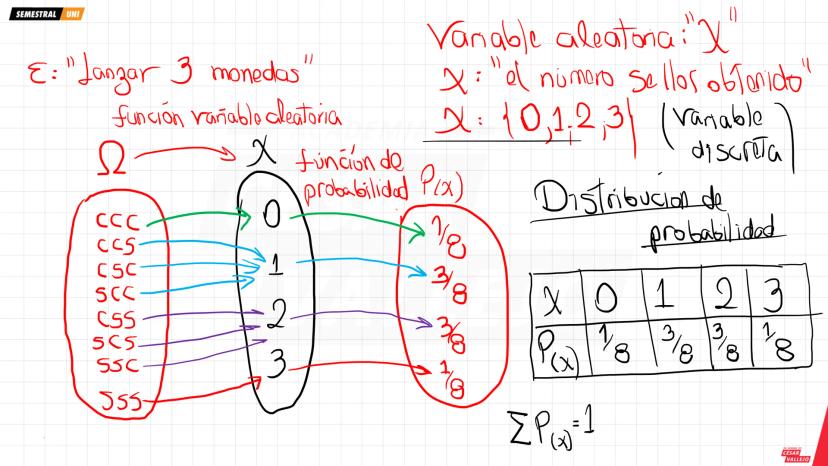 SEMESTRAL UNI
Variable aleatoria: "X"
ε: "Lanzar 3 monedas"
X: "el número sellos obtenido"
función variable aleatoria
X: {0,1,2,3} (variable discreta)
Ω → X
función de probabilidad P(x)
CCC
CCS
CSC
SCC
CSS
SCS
SSC
SSS
0
1
2
3
1/8
3/8
3/8
1/8
Distribución de
probabilidad
X 0 1 2 3
P(x) 1/8 3/8 3/8 1/8
∑P(x)=1
CESAR
VALLEJO